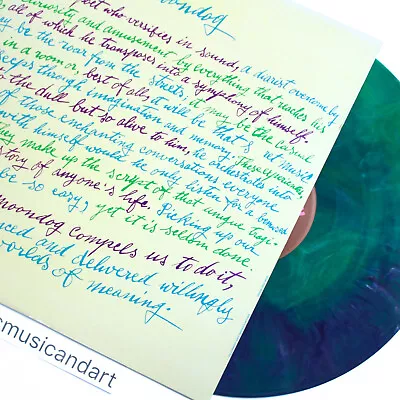 oondog
poet who versifies in sound, a diarist overcome by
curiosity and amusement by everything that reaches his
all of which he transposes into a symphony of himself.
may be the roar from the streets, it may be the casual
in a room or, best of all, it will be that silent music
seeps through imagination and memory. These experiences
to the dull but so alive to him, he orchestrates into
of those enchanting conversations everyone
with himself would he only listen for a
they make up the script of that unique tragi-
story of anyone's life. Picking up our
be so easy, yet it is seldom done.
Moondog compels us to do it,
nced and delivered willingly
worlds of meaning.
musicandart